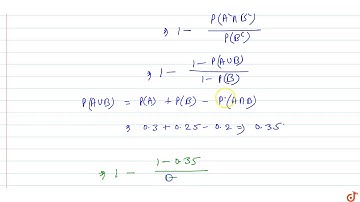 ⇒ 1 - P(A^c∩B^c) / P(B^c)
⇒ 1 - 1 - P(A∪B) / 1 - P(B)
P(A∪B) = P(A) + P(B) - P(A∩B)
⇒ 0.3 + 0.25 - 0.2 ⇒ 0.35
⇒ 1 - 1 - 0.35 / 0